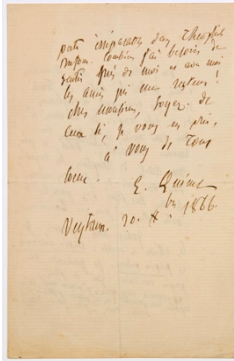 perte irréparable dans Théophile
Dufour. Combien j'ai besoin de
sentir près de moi et avec moi
les amis qui me restent !
cher monsieur, soyez de
ceux là, je vous en prie,
à vous de tout
coeur.
E. Quinet
Veytaux. 20. Xbre 1866